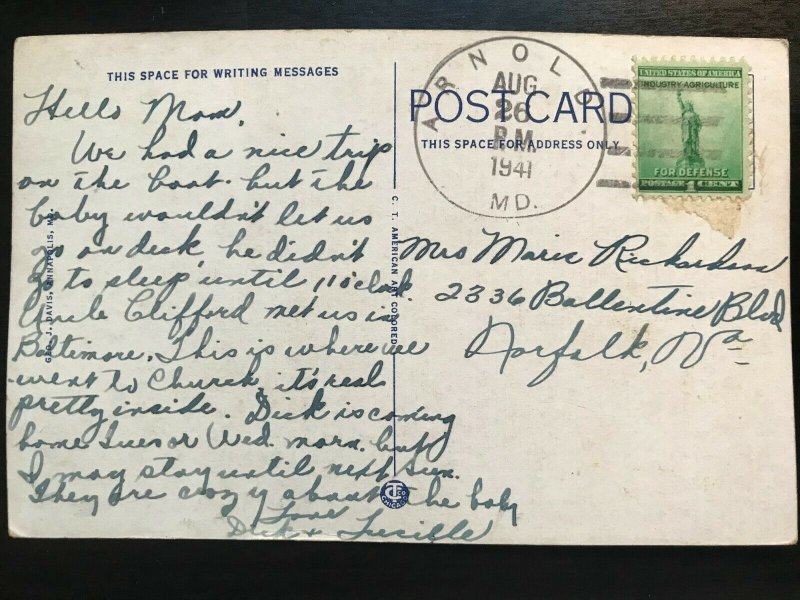 THIS SPACE FOR WRITING MESSAGES
Hello Mom,
We had a nice trip
on the boat but the
baby wouldn't let us
go on deck, he didn't
go to sleep until 11 o'clock
Uncle Clifford met us in
Baltimore. This is where we
went to Church, it's real
pretty inside. Dick is coming
home Tues or Wed. morn. but
I may stay until next Sun.
They are crazy about the baby
Love
Dick & Lucille
GEO. J. DAVIS, ANNAPOLIS, MD.
C. T. AMERICAN ART COLORED
CHICAGO
POST CARD
THIS SPACE FOR ADDRESS ONLY
ARNOLD
AUG
26
P.M.
1941
MD.
UNITED STATES OF AMERICA
INDUSTRY-AGRICULTURE
FOR DEFENSE
POSTAGE 1 CENT
Mrs Marie Richardson
2336 Ballentine Blvd
Norfolk, Va